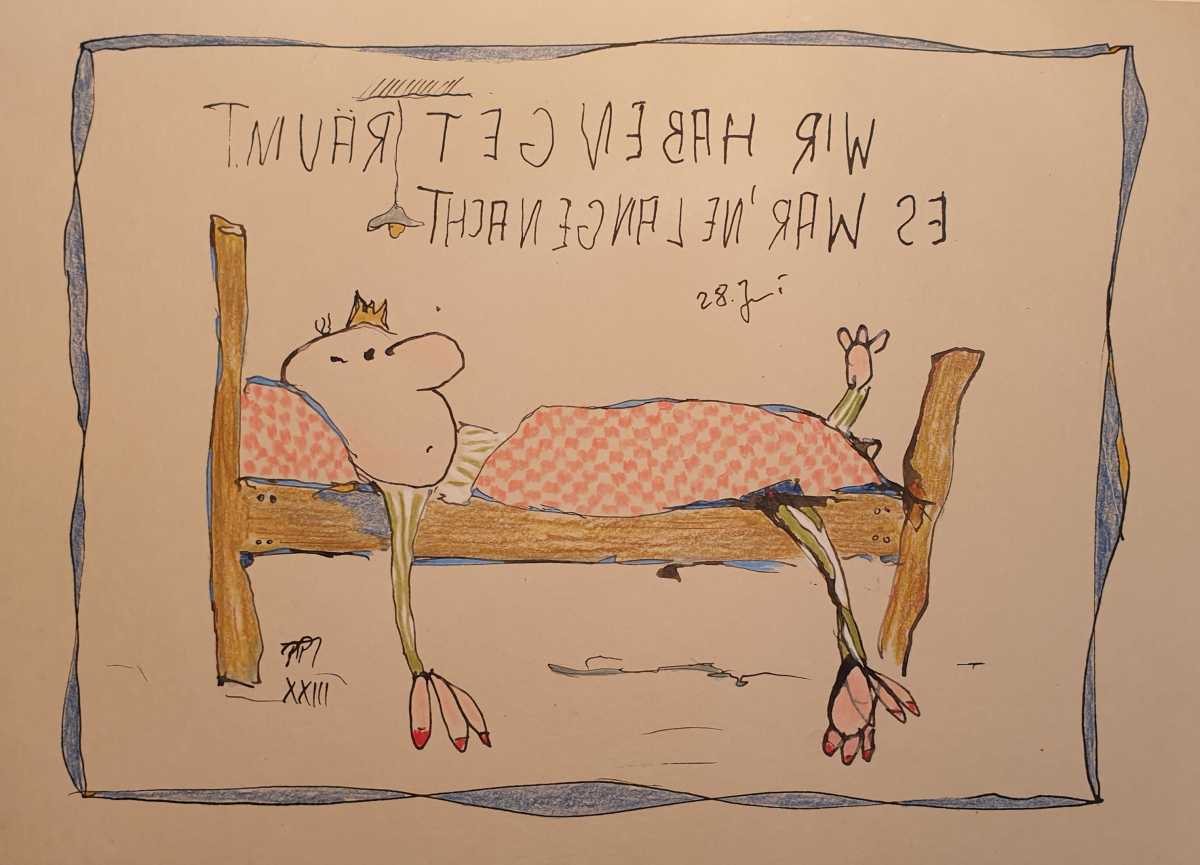 WIR HABEN GETRÄUMT
ES WAR 'NE LANGE NACHT
28. Juni
XXIII